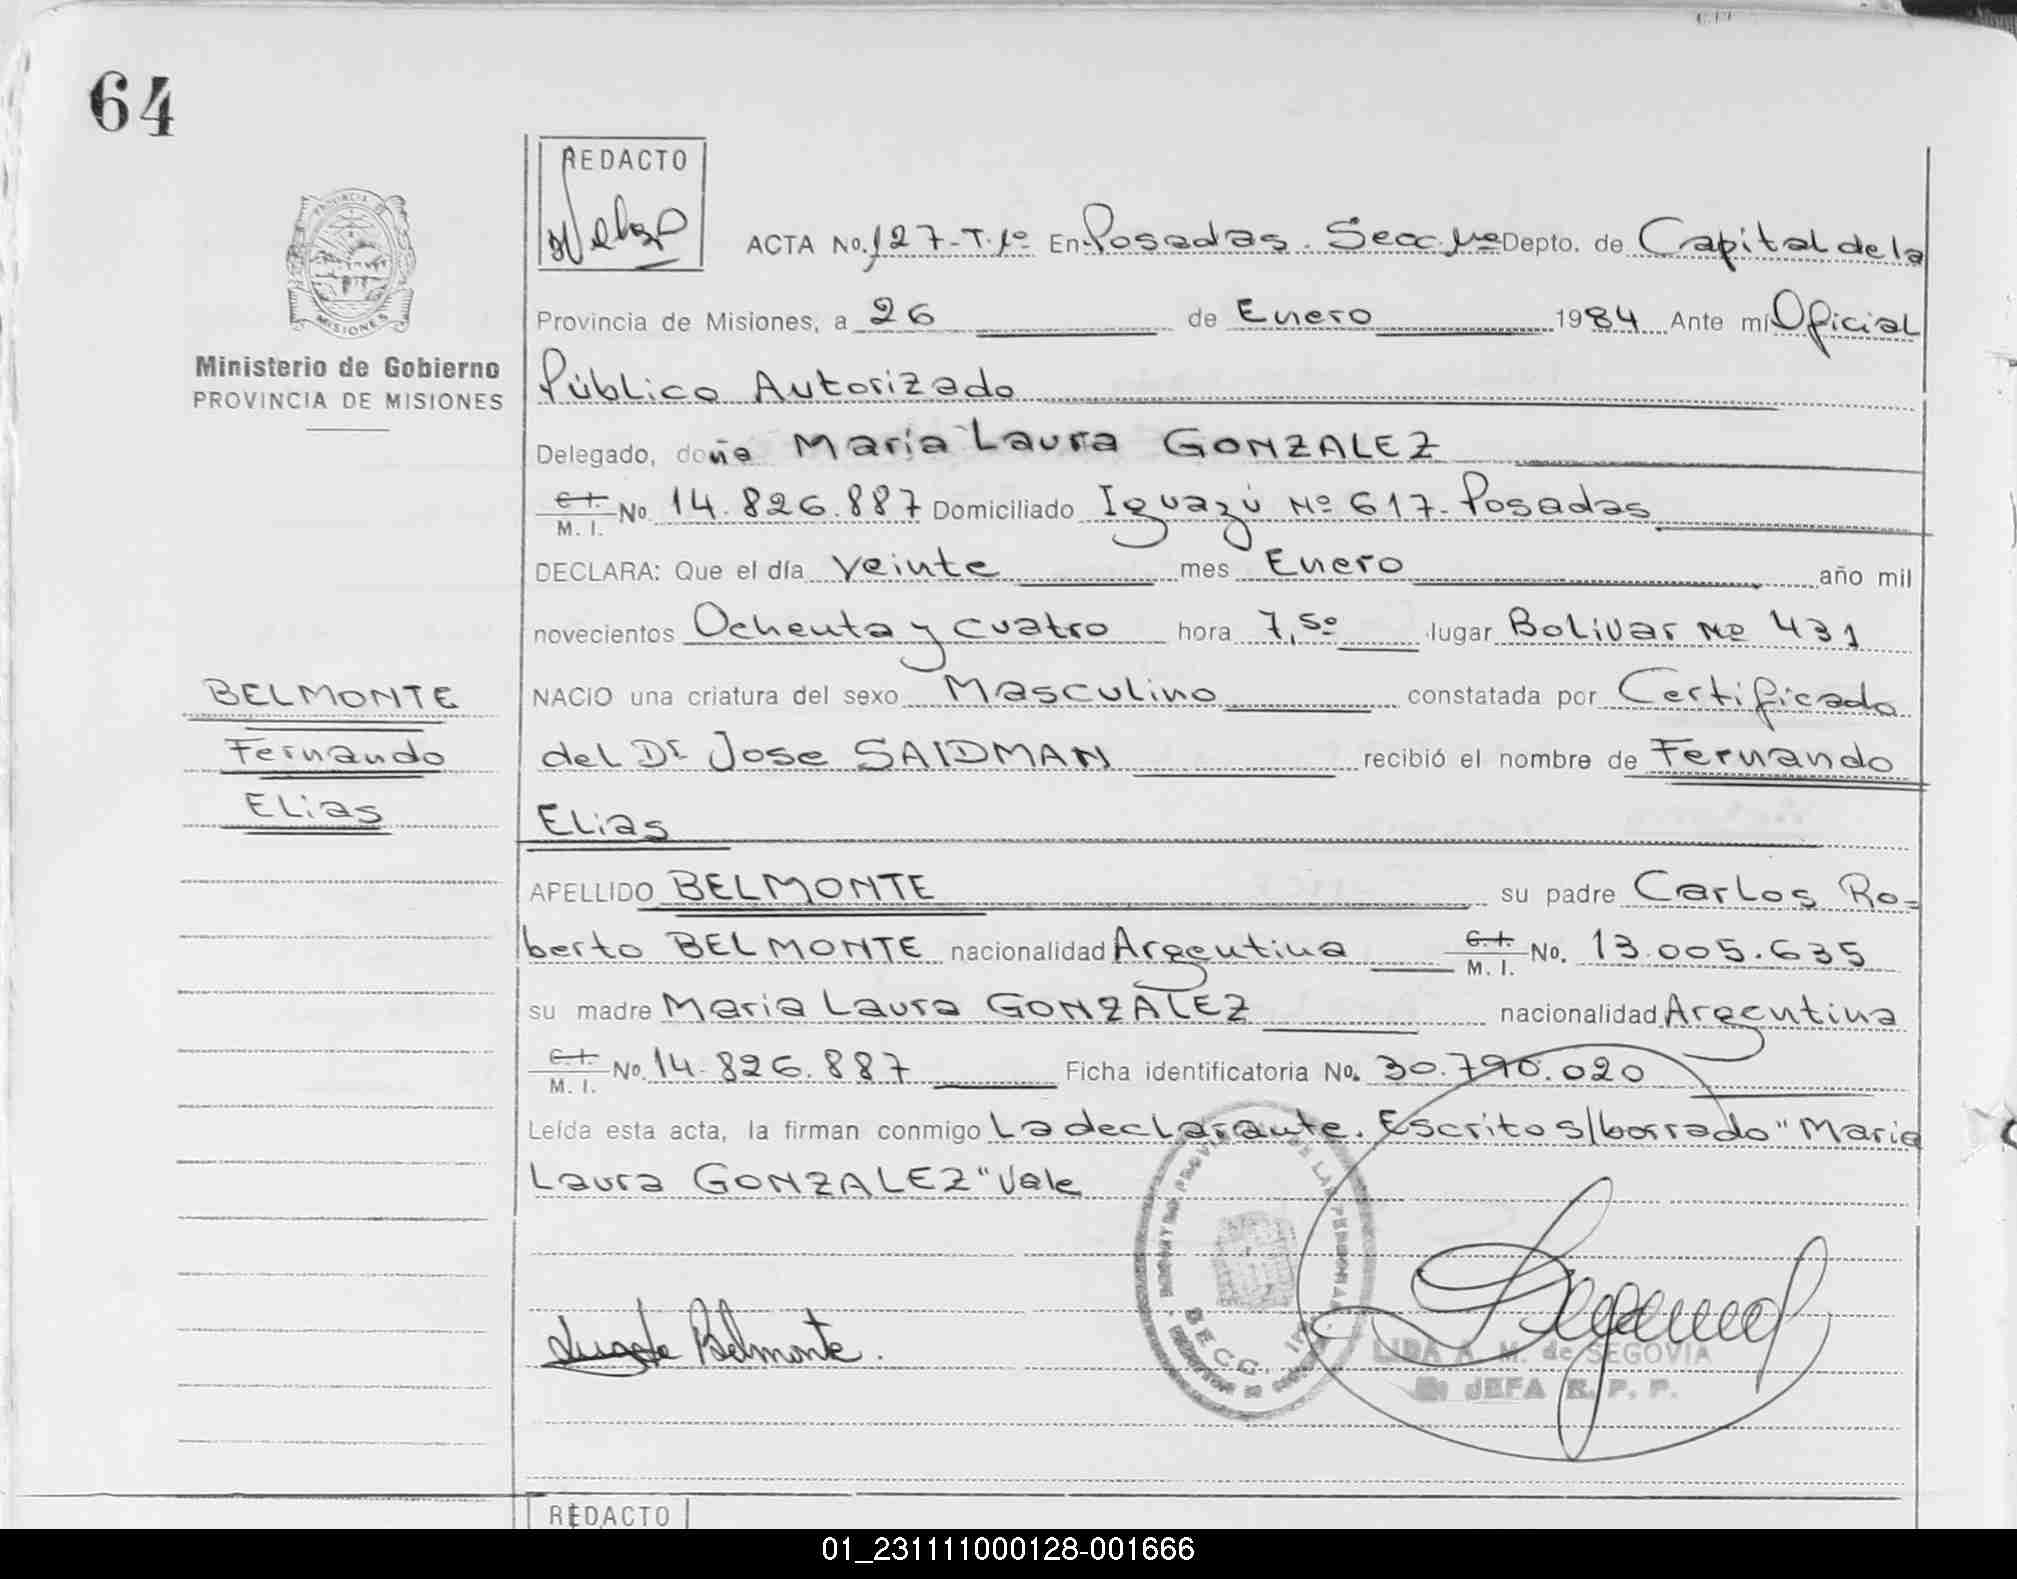 64
REDACTO
PROVINCIA DE
MISIONES
Ministerio de Gobierno
PROVINCIA DE MISIONES
ACTA No. 127-T.1º En Posadas. Secc. 1ª Depto. de Capital de la
Provincia de Misiones, a 26 de Enero 1984 Ante mi Oficial
Público Autorizado
Delegado, doña Maria Laura GONZALEZ
C.I. M. I. No. 14.826.887 Domiciliado Iguazú Nº 617. Posadas
DECLARA: Que el día veinte mes Enero año mil
novecientos Ochenta y cuatro hora 7,50 lugar Bolivar Nº 431
BELMONTE
Fernando
Elias
NACIO una criatura del sexo Masculino constatada por Certificado
del Dr Jose SAIDMAN recibió el nombre de Fernando
Elias
APELLIDO BELMONTE su padre Carlos Ro=
berto BELMONTE nacionalidad Argentina C.I. M. I. No. 13.005.635
su madre Maria Laura GONZALEZ nacionalidad Argentina
C.I. M. I. No. 14.826.887 Ficha identificatoria No. 30.790.020
Leída esta acta, la firman conmigo La declarante. Escrito s/borrado "Maria
Laura GONZALEZ" Vale
Belmonte.
LIDA A. M. de SEGOVIA
JEFA R. P. P.
REDACTO
01_231111000128-001666